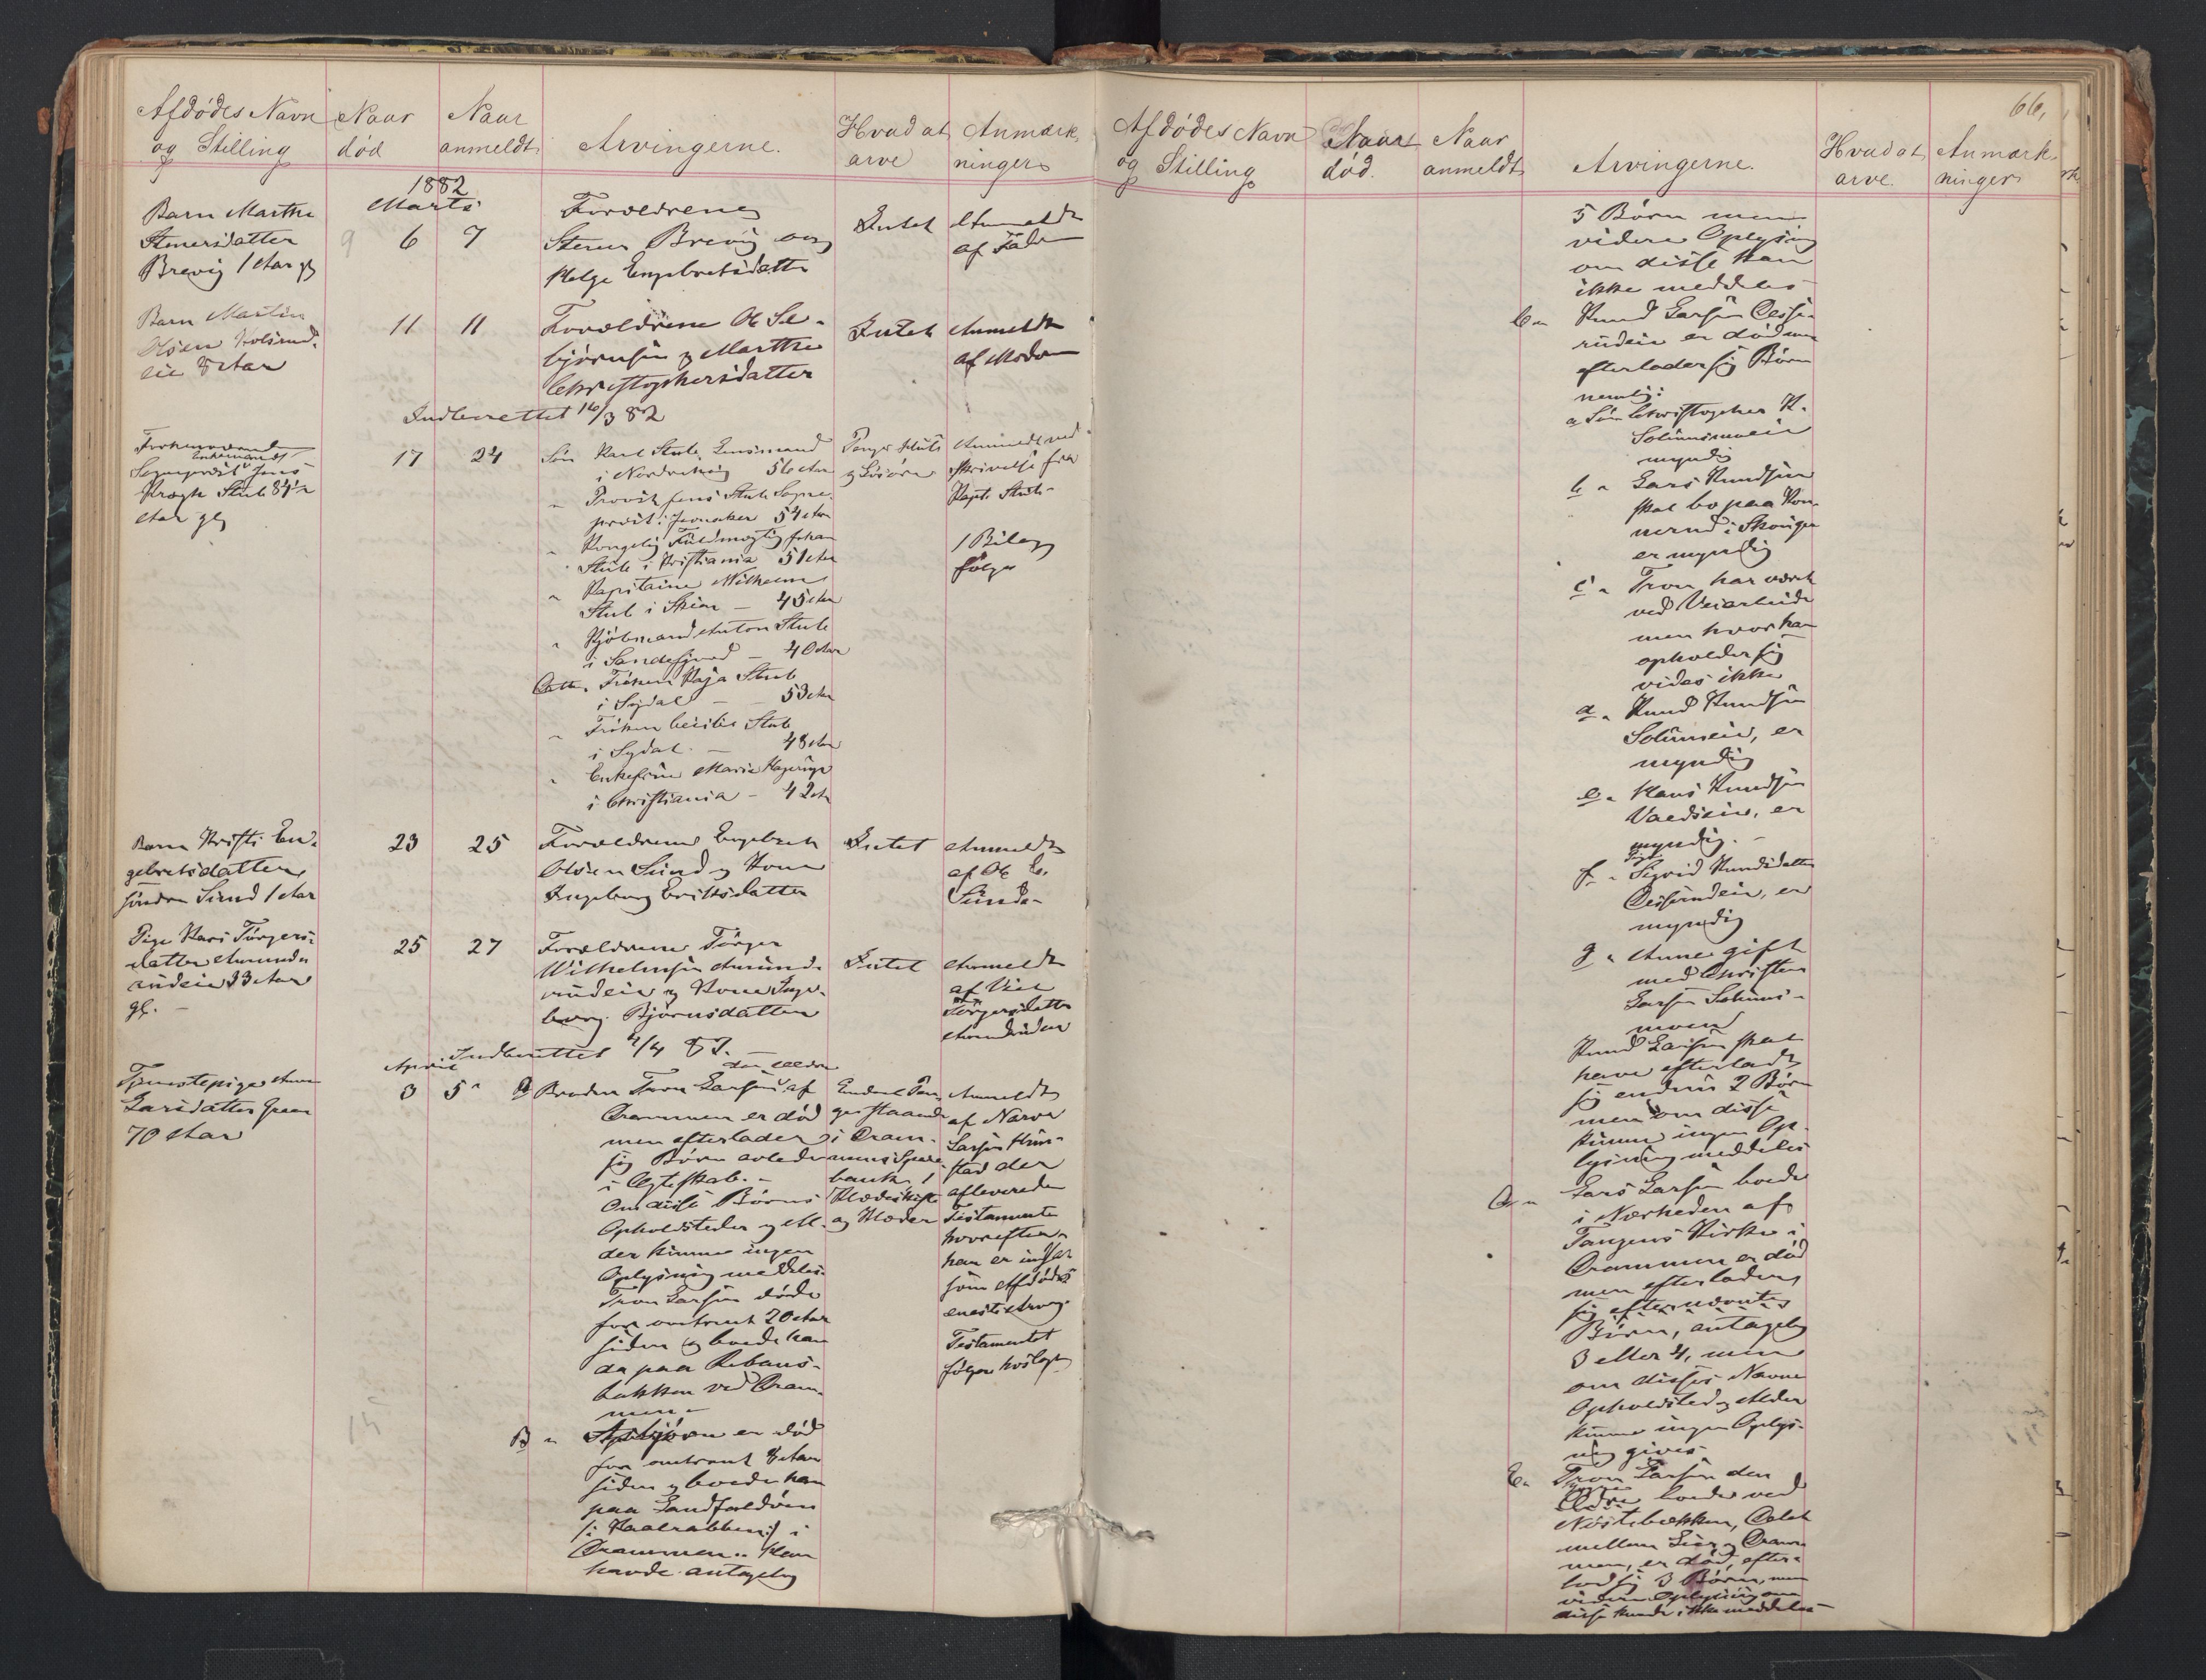 Afdødes Navn
og Stilling
Naar
død
Naar
anmeldt
Arvingerne.
Hvad at
arve
Anmærk-
ninger
1882
Marts
Barn Marthe
Stenersdatter
Brevig 1 Aar gl
6
7
Forældrene
Stener Brevig og
Helge Engebretsdatter
Intet
Anmeldt
af Fader
Barn Martin
Olsen
8 Aar
11
11
Forældrene Ol Se-
bjørnsen og Marthe
Christophersdatter
Intet
Anmeldt
af Moder
Indberettet 16/3 82
Enkemand
Sogneprest Jens
Kragh Stub 84½
Aar gl
17
24
Søn Karl Stub, Lensmand
i Nordrehoug 56 Aar
" Provst Jens Stub Sogne-
prest i Jevnaker 54 Aar
" Kongelig Fuldmægtig Johan
Stub i Kristiania 51 Aar
" Kapitaine Wilhelm
Stub i Skien - 45 Aar
" Kjøbmand Anton Stub
i Sandefjord - 40 Aar
Datter Frøken Kaja Stub
i Sigdal - 53 Aar
" Frøken Cecilie Stub
i Sigdal. - 48 Aar
" Enkefrue Marie
i Christiania - 42 Aar
Penge
og Løsøre
Anmeldt ved
skrivelse fra
Kapt. Stub-
1 Bilag
følger
Barn Kristi En-
gebretsdatter
søndre Sund 1 Aar
23
25
Forældrene Engebret
Olsen Sund og Kone
Ingeborg Eriksdatter
Intet
Anmeldt
af Ol E.
Sund-
Pige Kari Torgers-
datter Amunds-
rudeie 23 Aar
gl. -
25
27
Forældrene Torger
Wilhelmsen Amunds-
rudeie og Kone Inge-
borg Bjørnsdatter
Intet
Anmeldt
af
Torgersdatter
Indberettet 4/4 82.
April
Tjenestepige Anne
Larsdatter
70 Aar
3
5
A Broder Tron Larsen den ældre af
Drammen er død
men efterlader
sig Børn avlede
i Egteskab. -
Om disse Børns
Opholdsteder og Al-
der kunne ingen
Oplysning meddeles.
Tron Larsen døde
for omtrent 20 Aar
siden og boede han
da paa
bakken ved Dram-
men -
B " Asbjørn er død
for omtrent 8 Aar
siden og boede han
paa Landfaldøen
i
Drammen. Han
havde antagelig
Endel Pen-
ge staaende
i Dram-
mens Spare-
bank, 1
Klædeskiste
og Klæder
Anmeldt
af Narve
Larsen
stad der
afleverede
Testamente
hvorefter
han er indsat
som Afdødes
eneste Arving.
Testamentet
følger
Afdødes Navn
og Stilling
Naar
død.
Naar
anmeldt
Arvingerne.
Hvad at
arve.
Anmærk-
ninger
66,
5 Børn men
videre Oplysning
om disse kan
ikke meddeles
C " Knud Larsen
er død men
efterlader sig Børn
nemlig:
a Søn Christopher K.
myndig
b " Lars Knudsen
skal bo paa
i
er myndig
c " Tron har været
ved Veiarbeide
men hvor han
opholder sig
vides ikke
d " Knud Knudsen
er
myndig
e " Hans Knudsen
er
myndig. -
f " Sigrid Knudsdatter
er
myndig
g " Anne gift
med Christen
Larsen
Knud Larsen skal
have efterladt
sig endnu 2 Børn
men om disse
kunne ingen Op-
lysning meddeles
D " Lars Larsen boede
i Nærheden af
Tangens Kirke i
Drammen er død
men efterlader
sig
Børn, antagelig
3 eller 4, men
om disses Navne
Opholdsted og Alder
kunne ingen Oplys-
ning gives
E " Tron Larsen den
yngre boede ved
mellem Lier og Dram-
men, er død, efter-
lod sig 3 Børn, men
videre Oplysning om
disse kunde ikke meddeles